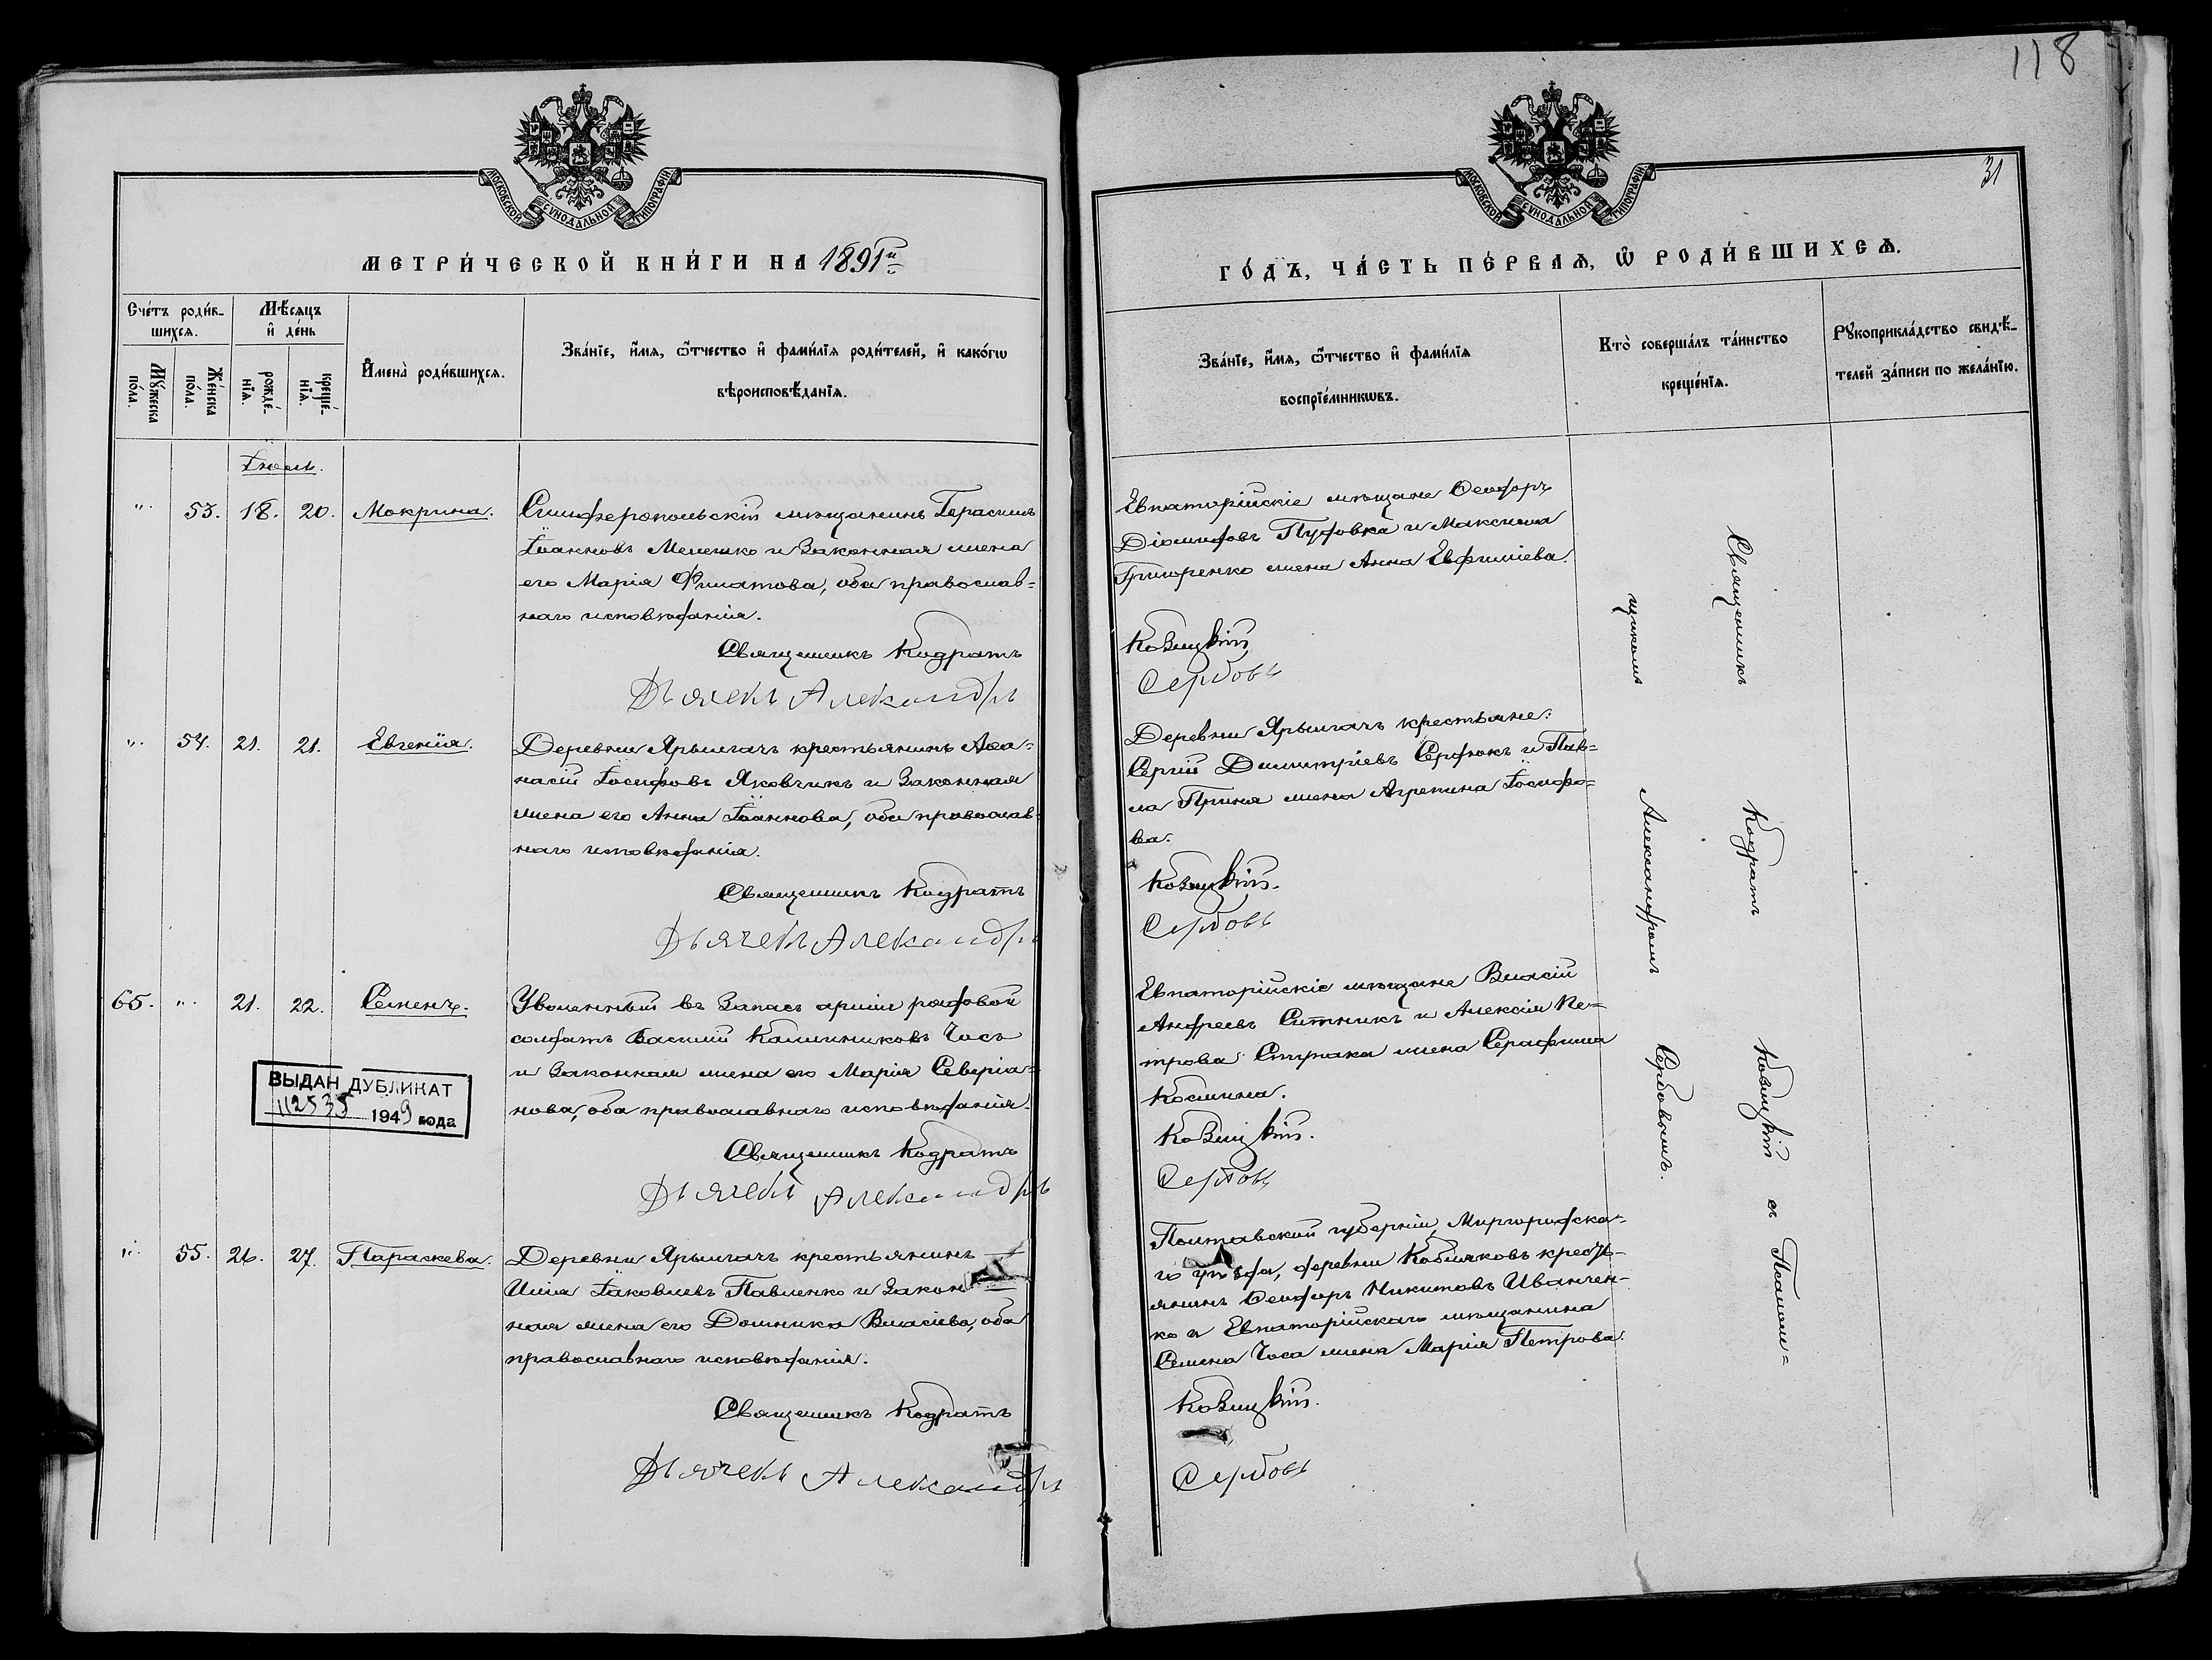 118
31
МОСКОВСКОЙ СѴНОДАЛЬНОЙ ТИПОГРАФІИ
МОСКОВСКОЙ СѴНОДАЛЬНОЙ ТИПОГРАФІИ
МЕТРИ́ЧЕСКОЙ КНИ́ГИ НА 1891й
ГО́ДЪ, ЧА́СТЬ ПЕ́РВАѦ, Ѡ҆ РОДИ́ВШИХСѦ.
Сче́тъ роди́в-
шихсѧ.
Мꙋ́жеска
по́ла.
Же́нска
по́ла.
Мѣ́сѧцъ
и҆ де́нь
рожде́-
нїѧ.
креще́-
нїѧ.
И҆мена̀ роди́вшихсѧ.
Зва́нїе, и҆́мѧ, ѻ҆́тчество и҆ фами́лїѧ роди́телей, и҆ како́гѡ
вѣроисповѣ́данїѧ.
Зва́нїе, и҆́мѧ, ѻ҆́тчество и҆ фами́лїѧ
воспрїе́мникѡвъ.
Кто̀ соверша́лъ та́инство
креще́нїѧ.
Рꙋкоприкла́дство свидѣ́-
телей за́писи по жела́нїю.
Іюль.
" 53. 18. 20. Мокрина.
Симферопольскій мѣщанинъ Герасимъ
Іоанновъ Мелешко и законная жена
его Марія Филатова, оба православ=
наго исповѣданія.
Священникъ Кодратъ
Дьячекъ Александръ
Евпаторійскіе мѣщане Ѳеодоръ
Діомидовъ Пудовка и Максима
Григоренко жена Анна Евфиміева.
Козицкій
Сербовъ
" 54. 21. 21. Евгенія.
Деревни Ярылгачъ крестьянинъ Аѳа=
насій Іосифовъ Яковчикъ и законная
жена его Анна Іоаннова, оба православ=
наго исповѣданія.
Священникъ Кодратъ
Дьячекъ Александръ
Деревни Ярылгачъ крестьяне:
Сергій Димитріевъ Сердюкъ и Пав=
ла Гриня жена Агрепина Іосифо=
ва.
Козицкій.
Сербовъ
65. " 21. 22. Семенъ.
Уволенный въ запасъ арміи рядовой
солдатъ Василій Калинниковъ Чосъ
и законная жена его Марія Северіа=
нова, оба православнаго исповѣданія.
Священникъ Кодратъ
Дьячекъ Александръ
ВЫДАН ДУБЛИКАТ
112535 1949 года
Евпаторійскіе мѣщане Власій
Андреевъ Ситникъ и Алексія Пе=
трова жена Серафима
Космина.
Козицкій.
Сербовъ
" 55. 26. 27. Параскева.
Деревни Ярылгачъ крестьянинъ
Илія Іаковлевъ Павленко и закон
ная жена его Домника Власіева, оба
православнаго исповѣданія.
Священникъ Кодратъ
Дьячекъ Александръ
Полтавской губерніи, Миргородска=
го уѣзда, деревни крестъ-
янинъ Ѳеодоръ Никитовъ Иванчен-
ко и Евпаторійскаго мѣщанина
Семена Чоса жена Марія Петрова.
Козицкій.
Сербовъ
Священникъ Кодратъ Козицкій съ Псалом=
щикомъ Александромъ Сербовымъ.